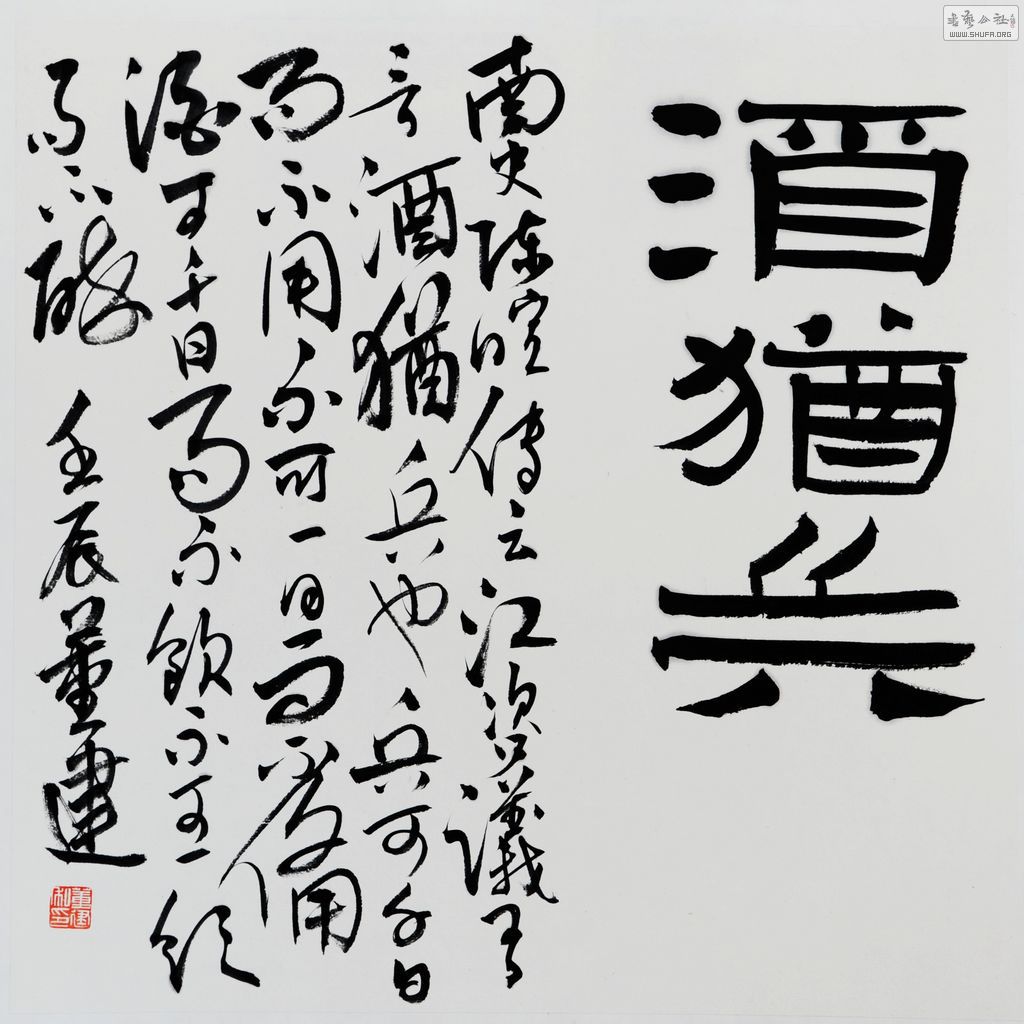 酒猶兵
南史陳暄傳云江諮議有
言酒猶兵也兵可千日
而不用不可一日而不備
酒可千日而不飲不可一飲
而不醉 壬辰董建
董建私印
書藝公社
WWW.SHUFA.ORG